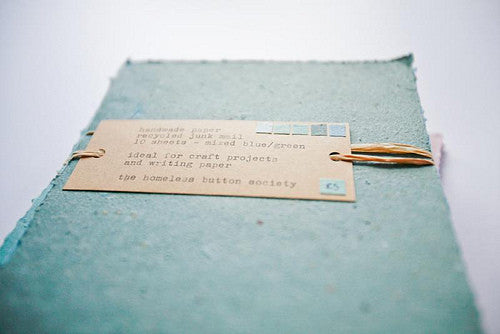 handmade paper
recycled junk mail
10 sheets - mixed blue/green
ideal for craft projects
and writing paper
the homeless button society
£5